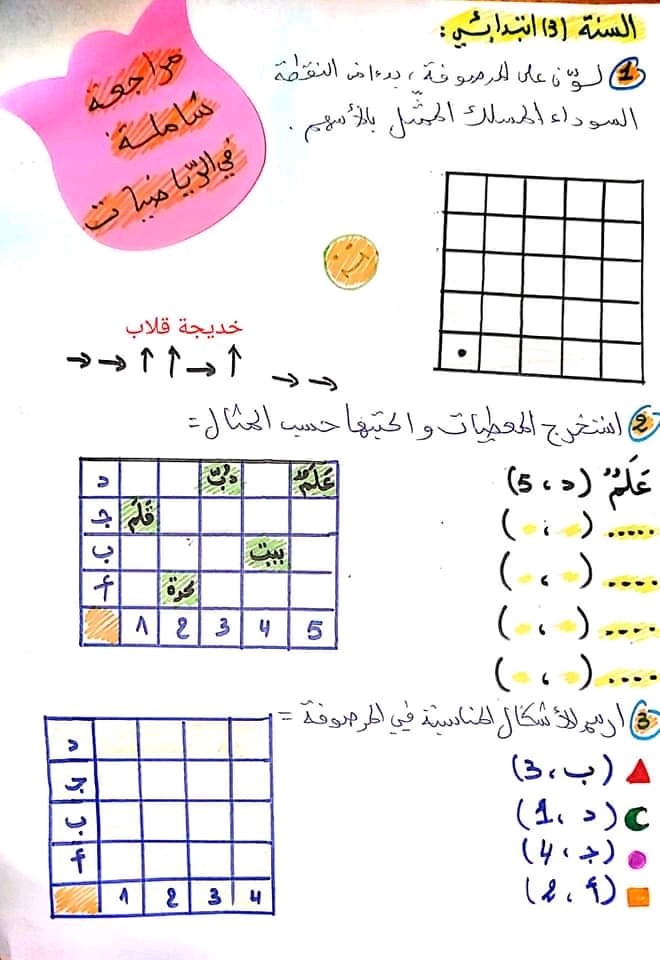 السنة (3) ابتدائي :
مراجعة
شاملة
في الرّياضيات
1 لوّن على المرصوفة ، بدءا من النقطة
السوداء المسلك الممثّل بالأسهم .
خديجة قلاب
→ → ↑ ↑ → ↑ → →
2 استخرج المعطيات و اكتبها حسب المثال =
عَلَمٌ (د ، 5)
..... ( . ، . )
..... ( . ، . )
..... ( . ، . )
..... ( . ، . )
د دبّ عَلَمٌ
ج قلم
ب بيت
أ
1 2 3 4 5
3 ارسم الأشكال المناسبة في المرصوفة =
(ب ، 3)
(د ، 1)
(ج ، 4)
(أ ، 2)
د
ج
ب
أ
1 2 3 4